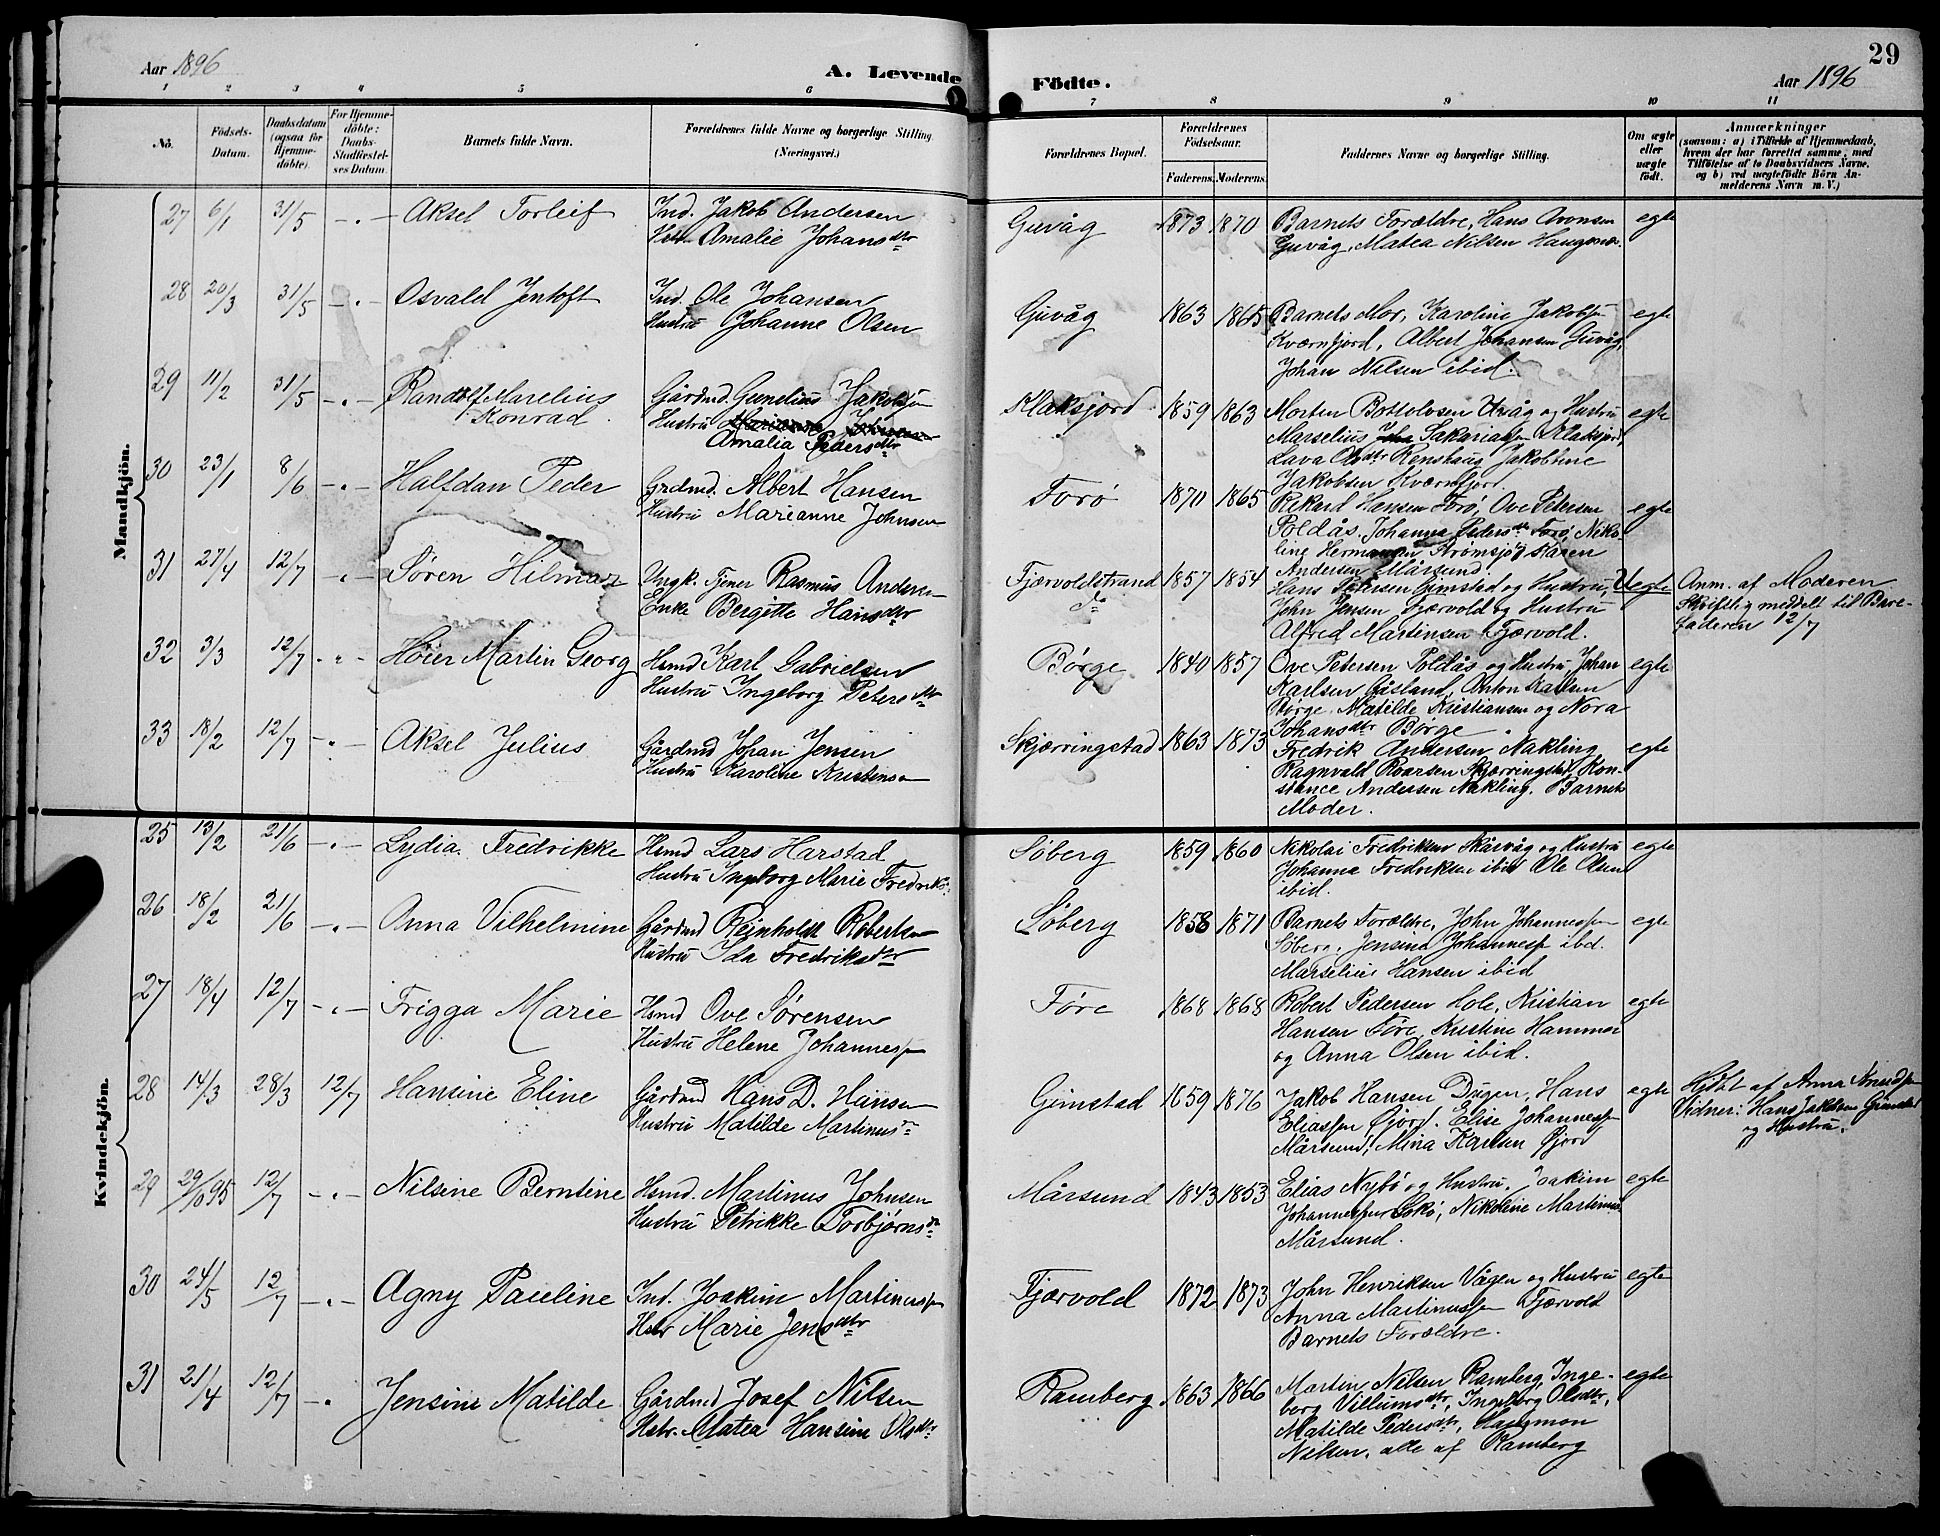 Aar 1896
A. Levende Födte.
Aar 1896
29
1 2 3 4 5 6 7 8 9 10 11
No.
Födsels-Datum.
Daabsdatum (ogsaa for Hjemme-döbte).
For Hjemme-döbte: Daabs-Stadfæstel-ses Datum.
Barnets fulde Navn.
Forældrenes fulde Navne og borgerlige Stilling. (Næringsvei.)
Forældrenes Bopæl.
Forældrenes Födselsaar.
Faderens. Moderens.
Faddernes Navne og borgerlige Stilling.
Om ægte eller uægte födt.
Anmærkninger
(saasom: a) i Tilfælde af Hjemmedaab,
hvem der har forrettet samme, med
Tilföielse af to Daabsvidners Navne,
og b) ved uægtefödte Börn An-
melderens Navn m. V.)
Mandkjön.
27 6/1 31/5 -"- Aksel Torleif
Ind. Jakob Andersen
Hstr. Amalie Johansdtr
Guvåg 1873 1870
Barnets Forældre, Hans Aronsen
Guvåg, Matea Nilsen Haugsnes
egte
28 20/3 31/5 -"- Osvald Jentoft
Ind. Ole Johansen
Hustru Johanne Olsen
Guvåg 1863 1865
Barnets Mor, Karoline Jakobsen
Kværnfjord, Albert Johansen Guvåg,
Johan Nilsen ibid.
egte
29 11/2 31/5 -"- Randolf Marelius
Konrad
Gårdmd. Gunelius Jakobsen
Hustru
Amalia Pedersdtr
Klaksjord 1859 1863
Morten Bottolvsen Utvåg og Hustru
Marselius Sakariassen Klaksjord
Lava Olsdtr Renshaug Jakobbine
Jakobsen Kværnfjord.
egte
30 23/1 8/6 -"- Halfdan Peder
Grdmd. Albert Hansen
Hustru Marianne Johnsen
Forö 1870 1865
Rikard Hansen Forö, Ove Petersen
Poldås, Johanna Pedersdtr Forö, Niko-
line Hermansen Strömsjord Karen
Andersen Mårsund.
egte
31 27/4 12/7 -"- Sören Hilmar
Ungk. Tjener Rasmus Andersen
Enke Bergitte Hansdtr
Fjærvoldstrand do 1857 1854
Hans Petersen Gimstad og Hustru,
John Jensen Fjærvold og Hustru
Alfred Martinsen Fjærvold.
Uegte
Anm. af Moderen
Skriftlig meddelt til Barne-
faderen 12/7
32 3/3 12/7 -"- Höier Martin Georg
Hsmd Karl Gabrielsen
Hustru Ingeborg Petersdtr
Börge 1840 1857
Ove Petersen Poldås og Hustru, Johan
Karlsen Gåsland, Anton Karlsen
Börge. Matilde Kristiansen og Nora
Johansdtr Börge.
egte
33 18/2 12/7 -"- Aksel Julius
Gårdmd Johan Jensen
Hustru Karoline Kristinsen
Skjærringstad 1863 1873
Fredrik Andersen Nakling
Ragnvald Roarsen Skjærringstad, Kon-
stance Andersen Nakling. Barnets
Moder.
egte
Kvindekjön.
25 13/2 21/6 -"- Lydia Fredrikke
Hsmd Lars Harstad
Hustru Ingeborg Marie Fredriks
Söberg 1859 1860
Nikolai Fredriksen Skårvåg og Hustru
Johanna Fredriksen ibid Ole Olsen
ibid.
egte
26 18/2 21/6 -"- Anna Vilhelmine
Gårdmd Reinholdt Robertsen
Hustru Ida Fredriksdtr
Söberg 1858 1871
Barnets Forældre, John Johannessen
Söberg. Jensine Johannesen ibd.
Marselius Hansen ibid
egte
27 18/4 12/7 -"- Frigga Marie
Hsmd Ove Sörensen
Hustru Helene Johannesen
Före 1868 1868
Robert Pedersen Hole, Kristian
Hansen Före, Kristine Hammer
og Anna Olsen ibid.
egte
28 14/3 28/3 12/7 Hansine Eline
Gårdmd Hans D. Hansen
Hustru Matilde Martinusdr
Gimstad 1859 1876
Jakob Hansen Dugen, Hans
Eliassen Öjord. Elise Johannessen
Mårsund, Mina Karlsen Öjord
egte
Hjdöbt af Anna Knudsen
Vidner: Hans Jakobsen Gimstad
og Hustru.
29 29/10 95 12/7 -"- Nilsine Berntine
Hsmd. Martinus Johnsen
Hustru Petrikke Torbjörnsdr
Mårsund 1843 1853
Elias Nybö og Hustru, Joakim
Johannessen Skö, Nikoline Martinus
Mårsund.
egte
30 24/5 12/7 -"- Agny Pauline
Ind. Joakim Martinussen
Hstr Marie Jensdtr
Fjærvold 1872 1873
John Henriksen Vågen og Hustru
Anna Martinussen Fjærvold
Barnets Forældre.
egte
31 21/4 12/7 -"- Jensine Matilde
Gårdmd Josef Nilsen
Hstr. Matea Hansine Olsdtr
Ramberg 1863 1866
Martin Nilsen Ramberg, Inge-
borg Villumsdtr, Ingeborg Olsdtr,
Matilde Pedersdtr, Hagman
Nilsen, alle af Ramberg
egte